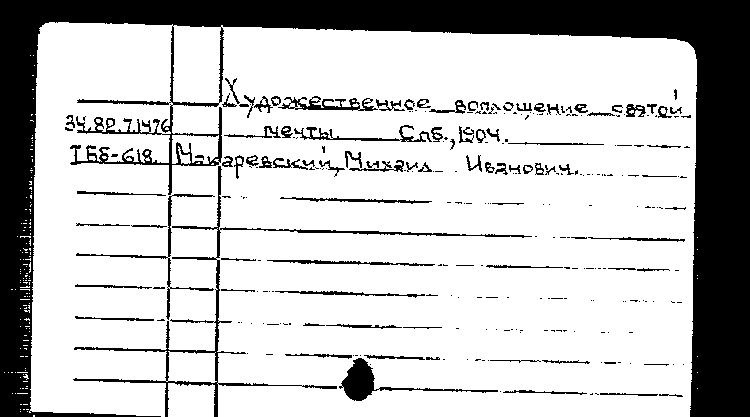 Художественное воплощение святой
34.82.7.1476 мечты. Спб., 1904.
I Бб-618. Макаревский, Михаил Иванович.